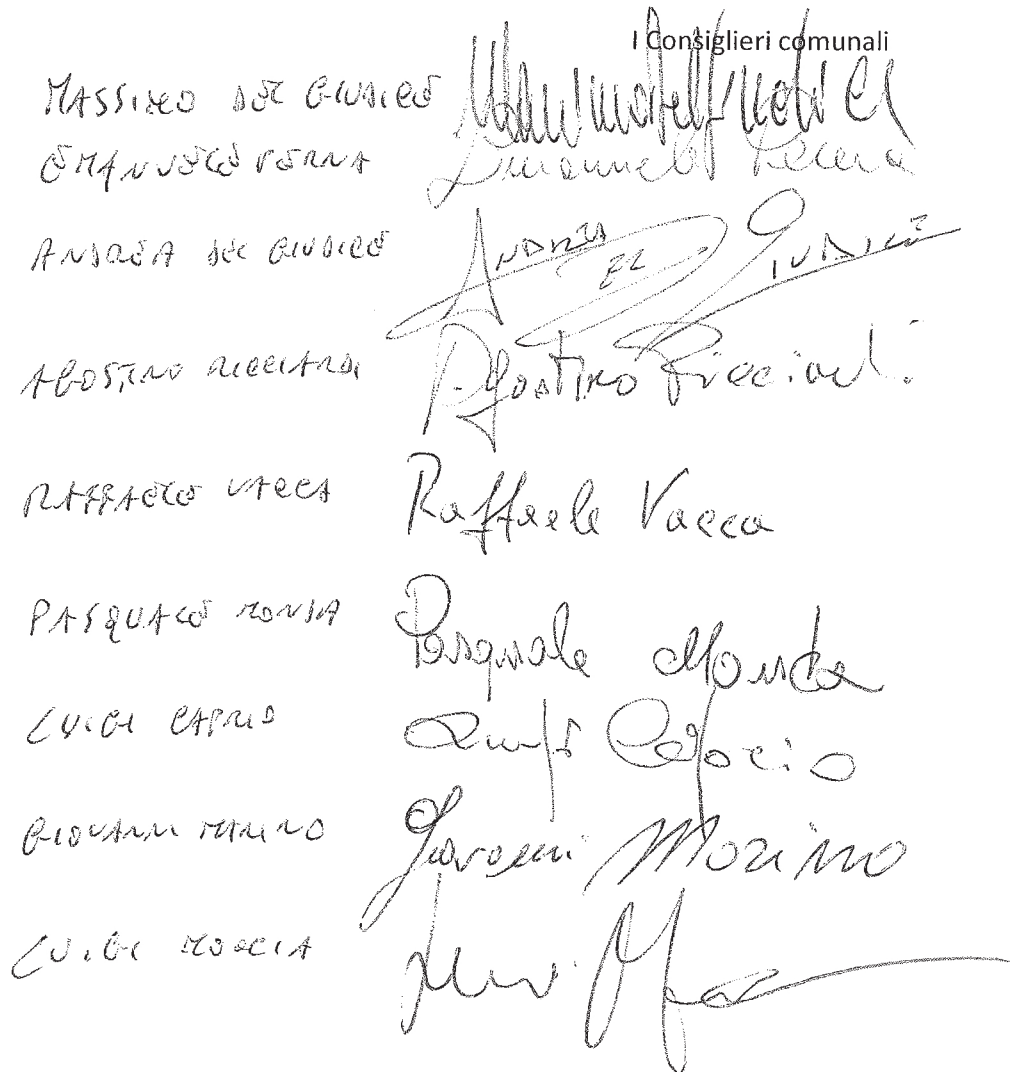 I Consiglieri comunali
MASSIMO DEL GIUDICE Massimo del Giudice
EMANUELE VERNA Emanuele Verna
ANDREA DEL GIUDICE ANDREA DEL GIUDICE
AGOSTINO RICCIARDI Agostino Ricciardi
RAFFAELE VACCA Raffaele Vacca
PASQUALE MONDA Pasquale Monda
LUIGI CAPRIO Luigi Caprio
GIOVANNI MARINO Giovanni Marino
LUIGI MOCCIA Luigi